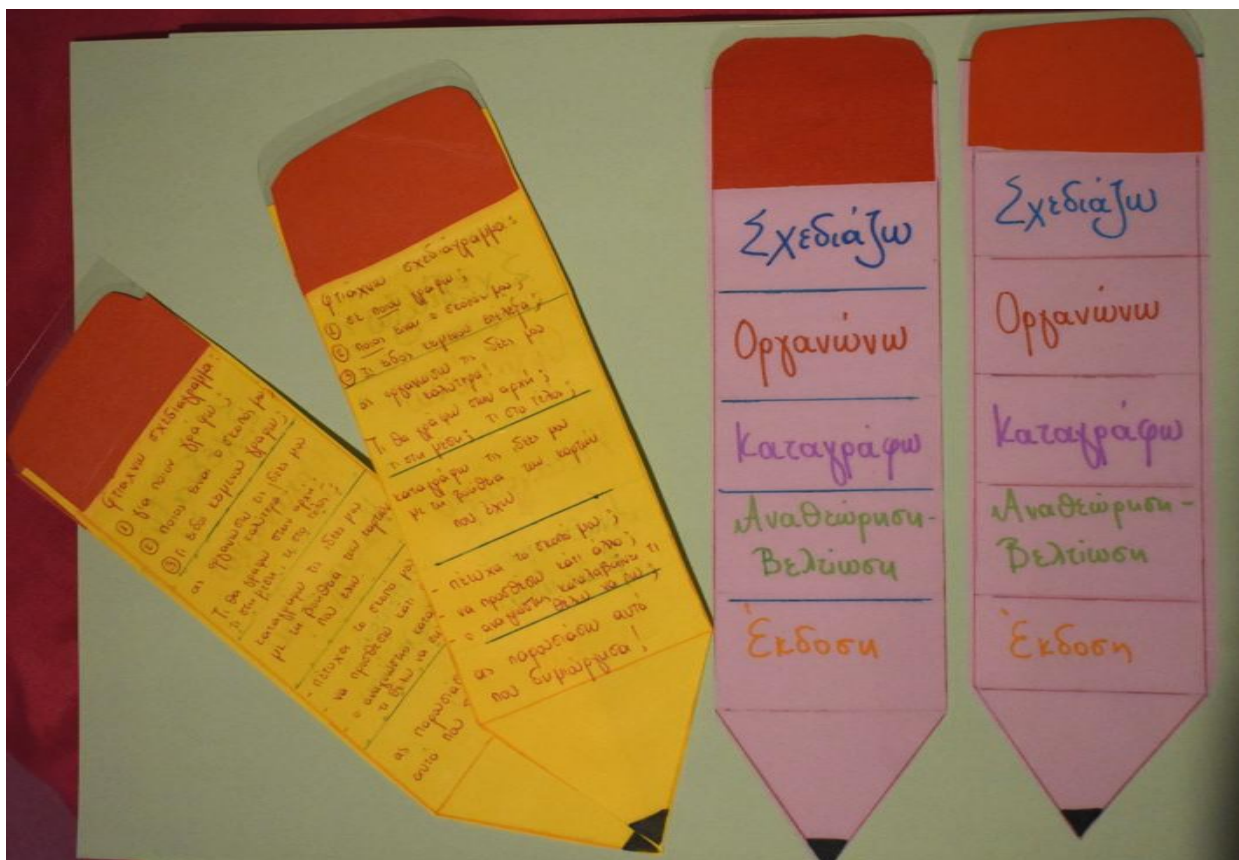 φτιάχνω σχεδιάγραμμα:
① για ποιον γράφω;
② ποιος είναι ο σκοπός μου;
③ τι είδος κειμένου γράφω;
ας οργανώσω τις ιδέες μου
καλύτερα!
Τι θα γράψω στην αρχή;
τι στη μέση; τι στο τέλος;
καταγράφω τις ιδέες μου
με τη βοήθεια των καρτών
που έχω
- πέτυχα το σκοπό μου;
- να προσθέσω κάτι
- ο αναγνώστης
τι θέλω να
ας παρουσιάσω
αυτό που
φτιάχνω σχεδιάγραμμα:
① σε ποιον γράφω;
② ποιος είναι ο σκοπός μου;
③ τι είδος κειμένου επέλεξα;
ας οργανώσω τις ιδέες μου
καλύτερα!
Τι θα γράψω στην αρχή;
τι στη μέση; τι στο τέλος;
καταγράφω τις ιδέες μου
με τη βοήθεια των καρτών
που έχω
- πέτυχα το σκοπό μου;
- να προσθέσω κάτι άλλο;
- ο αναγνώστης καταλαβαίνει τι
θέλω να πω;
ας παρουσιάσω αυτό
που δημιούργησα!
Σχεδιάζω
Οργανώνω
Καταγράφω
Αναθεώρηση-
Βελτίωση
Έκδοση
Σχεδιάζω
Οργανώνω
Καταγράφω
Αναθεώρηση-
Βελτίωση
Έκδοση